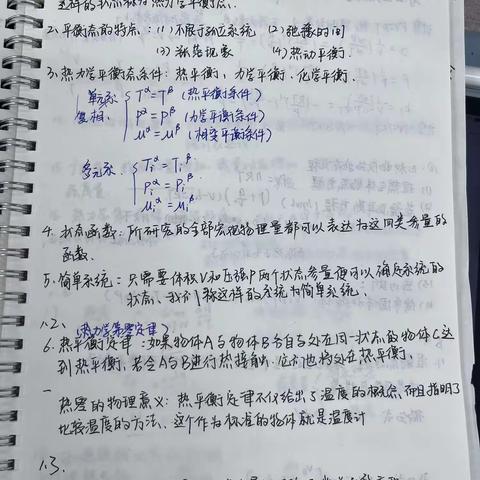 这样的状态称为热力学平衡态.
2. 平衡态的特点: (1) 不限于孤立系统 (2) 弛豫时间
(3) 涨落现象 (4) 热动平衡.
3. 热力学平衡态条件: 热平衡, 力学平衡, 化学平衡.
单元系 T^α = T^β (热平衡条件)
复相, P^α = P^β (力学平衡条件)
μ^α = μ^β (相变平衡条件)
多元系. T_i^α = T_i^β
P_i^α = P_i^β
μ_i^α = μ_i^β
4. 状态函数: 所研究的全部宏观物理量都可以表达为这四类参量的
函数.
5. 简单系统: 只需要体积V和压强P两个状态参量便可以确定系统的
状态, 我们称这样的系统为简单系统.
1.2. (热力学第零定律)
6. 热平衡定律: 如果物体A与物体B各自与处在同一状态的物体C达
到热平衡, 若令A与B进行热接触, 它们也将处在热平衡.
热零的物理意义: 热平衡定律不仅给出了温度的概念, 而且指明了
比较温度的方法. 这个作为标准的物体就是温度计
1.3.